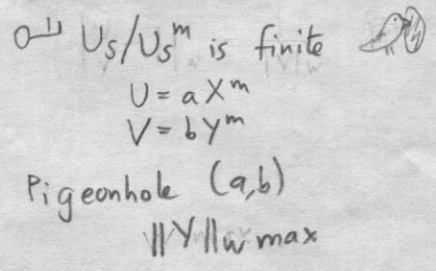 U_S/U_S^m is finite
U = a X^m
V = b Y^m
Pigeonhole (a,b)
||Y||_w max